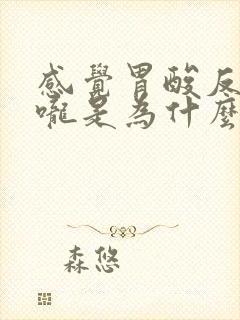 感覺胃酸反
嚨是為什麼
森悠